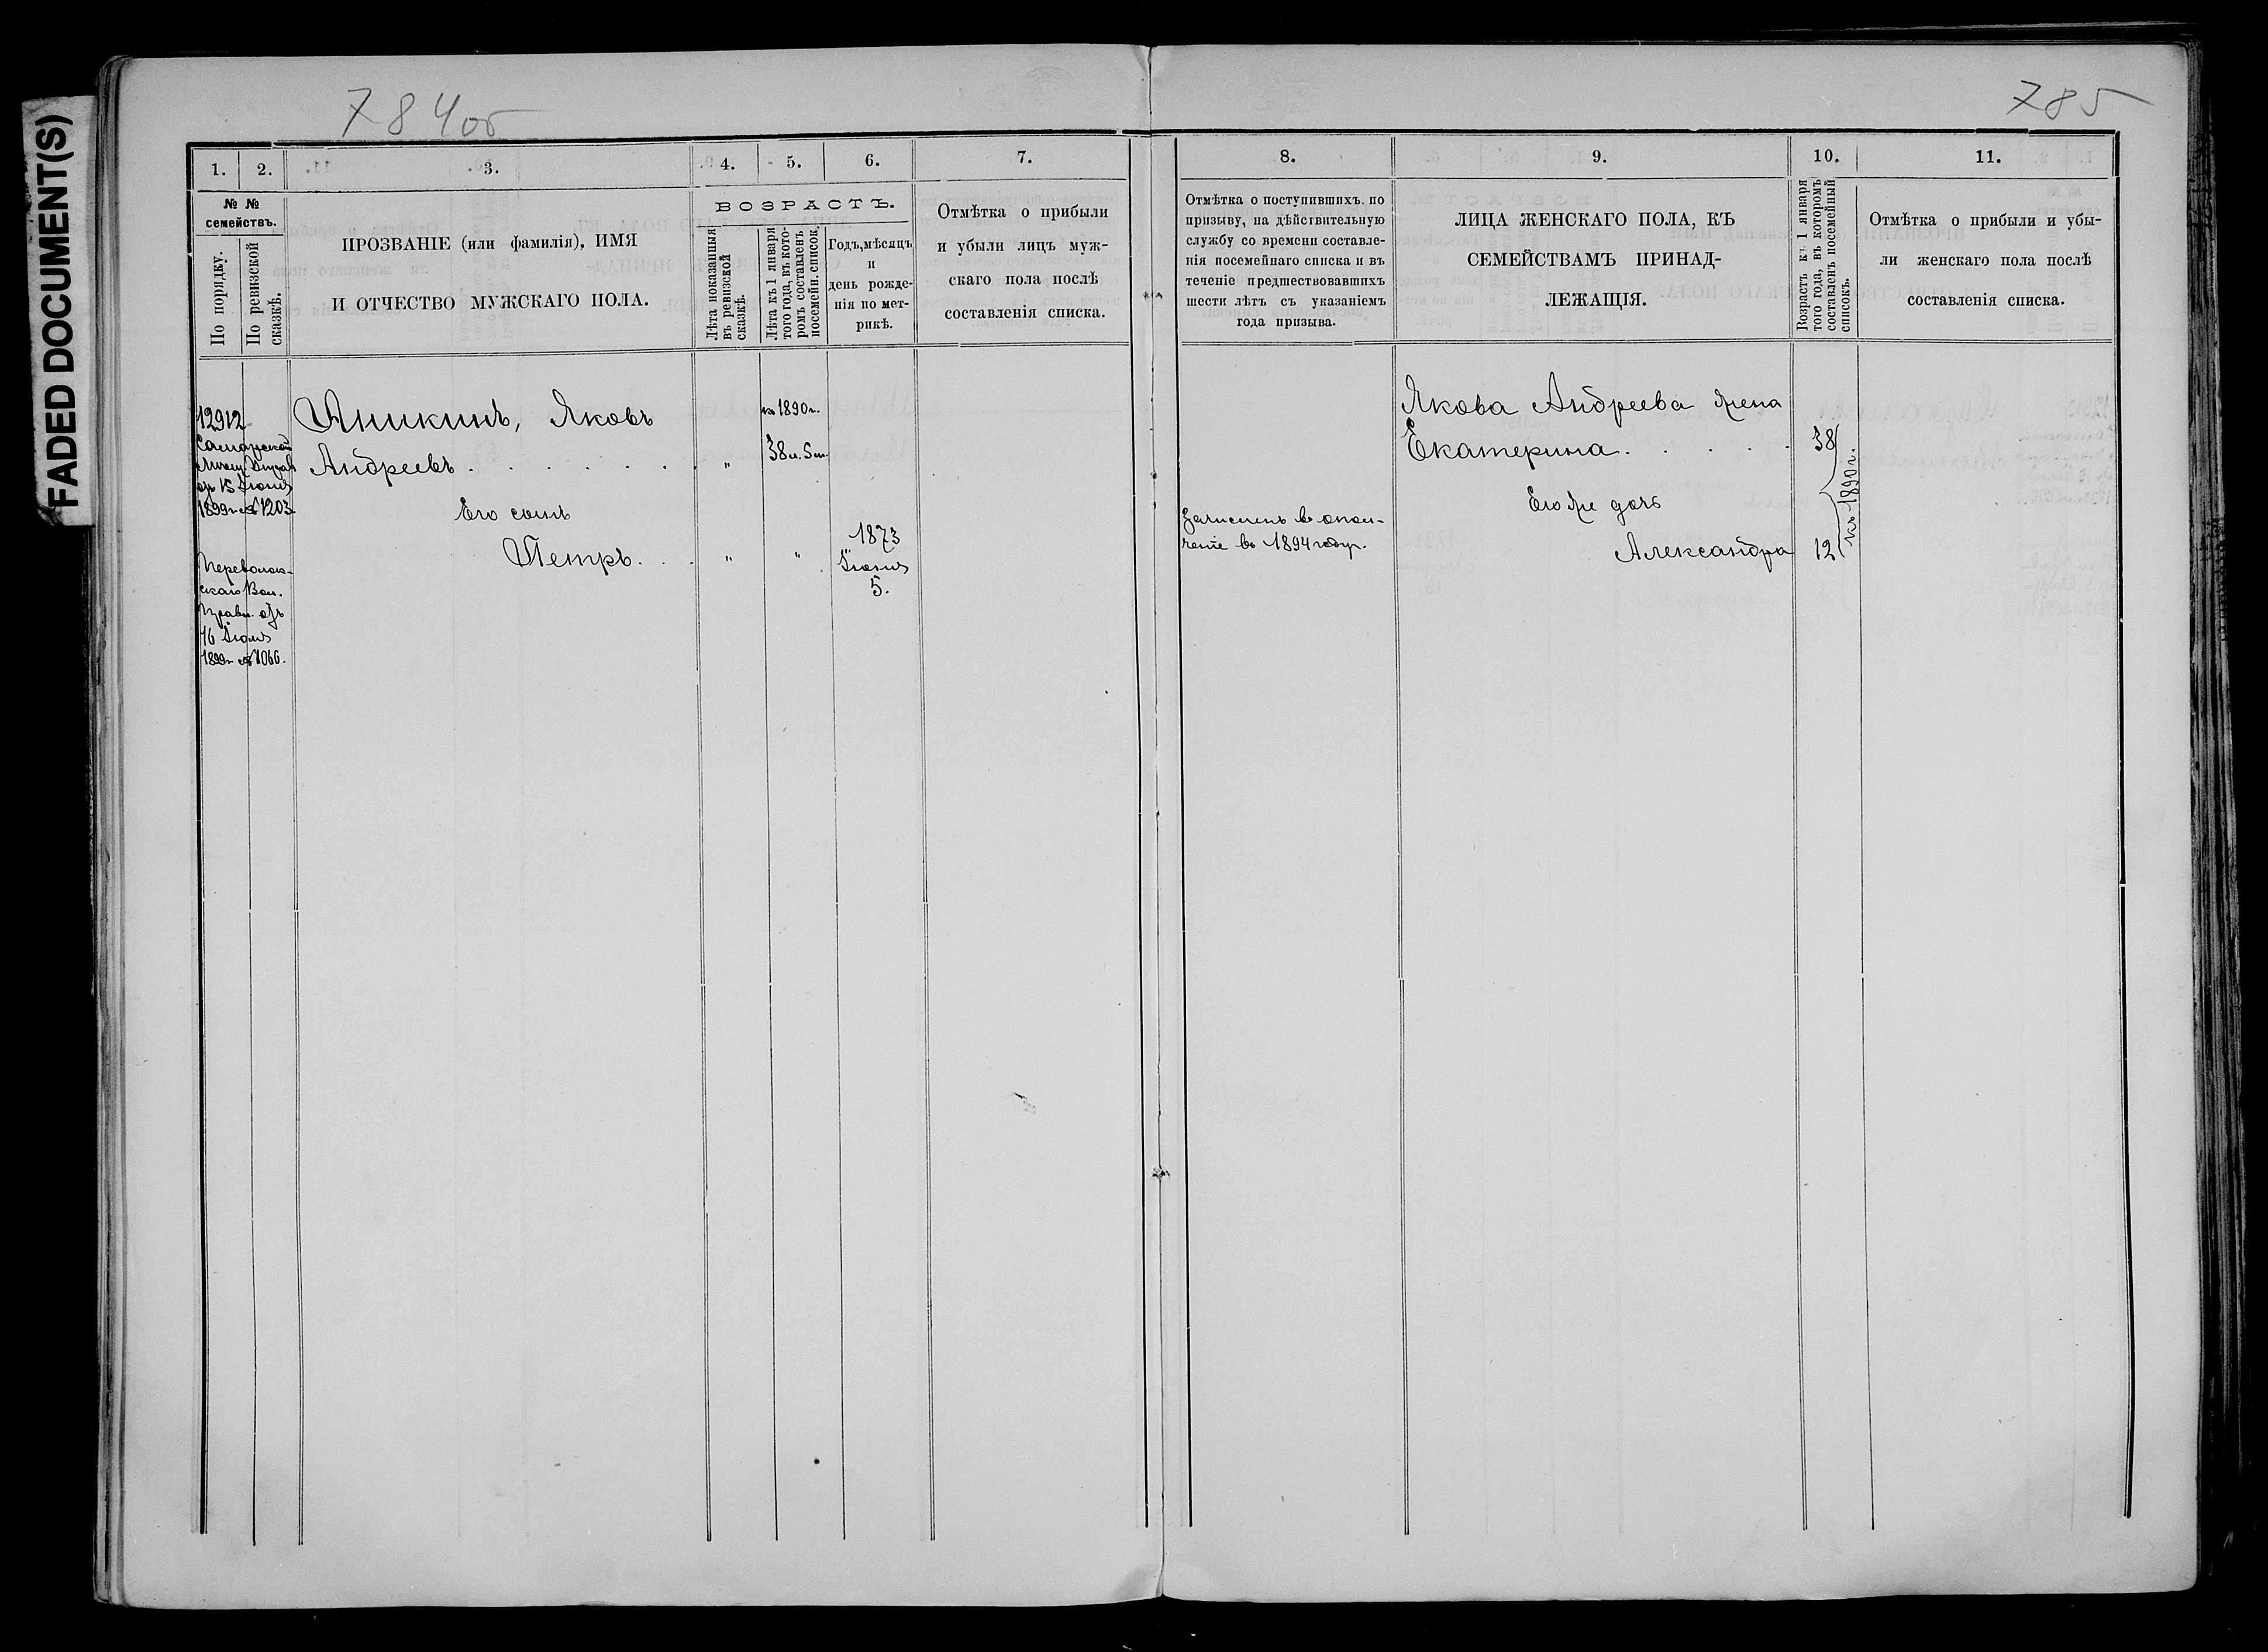 FADED DOCUMENT(S)
784об
785
1.
2.
3.
4.
5.
6.
7.
№ №
семействъ.
По порядку.
По ревизской
сказкѣ.
ПРОЗВАНІЕ (или фамилія), ИМЯ
И ОТЧЕСТВО МУЖСКАГО ПОЛА.
ВОЗРАСТЪ.
Лѣта показанныя
въ ревизской
сказкѣ.
Лѣта къ 1 января
того года, въ кото-
ромъ составленъ
посемейн. список.
Годъ, мѣсяцъ
и
день рожде-
нія по мет-
рикѣ.
Отмѣтка о прибыли
и убыли лицъ муж-
скаго пола послѣ
составленія списка.
12912
Самарской
Управы
отъ 15 Іюня
1899 г. № 1203.
Переволок-
скаго Вол.
Правл. отъ
16 Іюля
1899 г. № 1066.
Аникинъ, Яковъ
Андреевъ . . . . . . . "
къ 1890 г.
38 л. 5 м.
Его сынъ
Петръ. . . " "
1873
Іюня
5.
8.
9.
10.
11.
Отмѣтка о поступившихъ, по
призыву, на дѣйствительную
службу со времени составле-
нія посемейнаго списка и въ
теченіе предшествовавшихъ
шести лѣтъ съ указаніемъ
года призыва.
ЛИЦА ЖЕНСКАГО ПОЛА, КЪ
СЕМЕЙСТВАМЪ ПРИНАД-
ЛЕЖАЩІЯ.
Возрастъ къ 1 января
того года, въ которомъ
составленъ посемейный
списокъ.
Отмѣтка о прибыли и убы-
ли женскаго пола послѣ
составленія списка.
Зачисленъ въ опол-
ченіе въ 1894 году.
Якова Андреева жена
Екатерина. . . . . 38
Его же дочь
Александра 12
къ 1890 г.